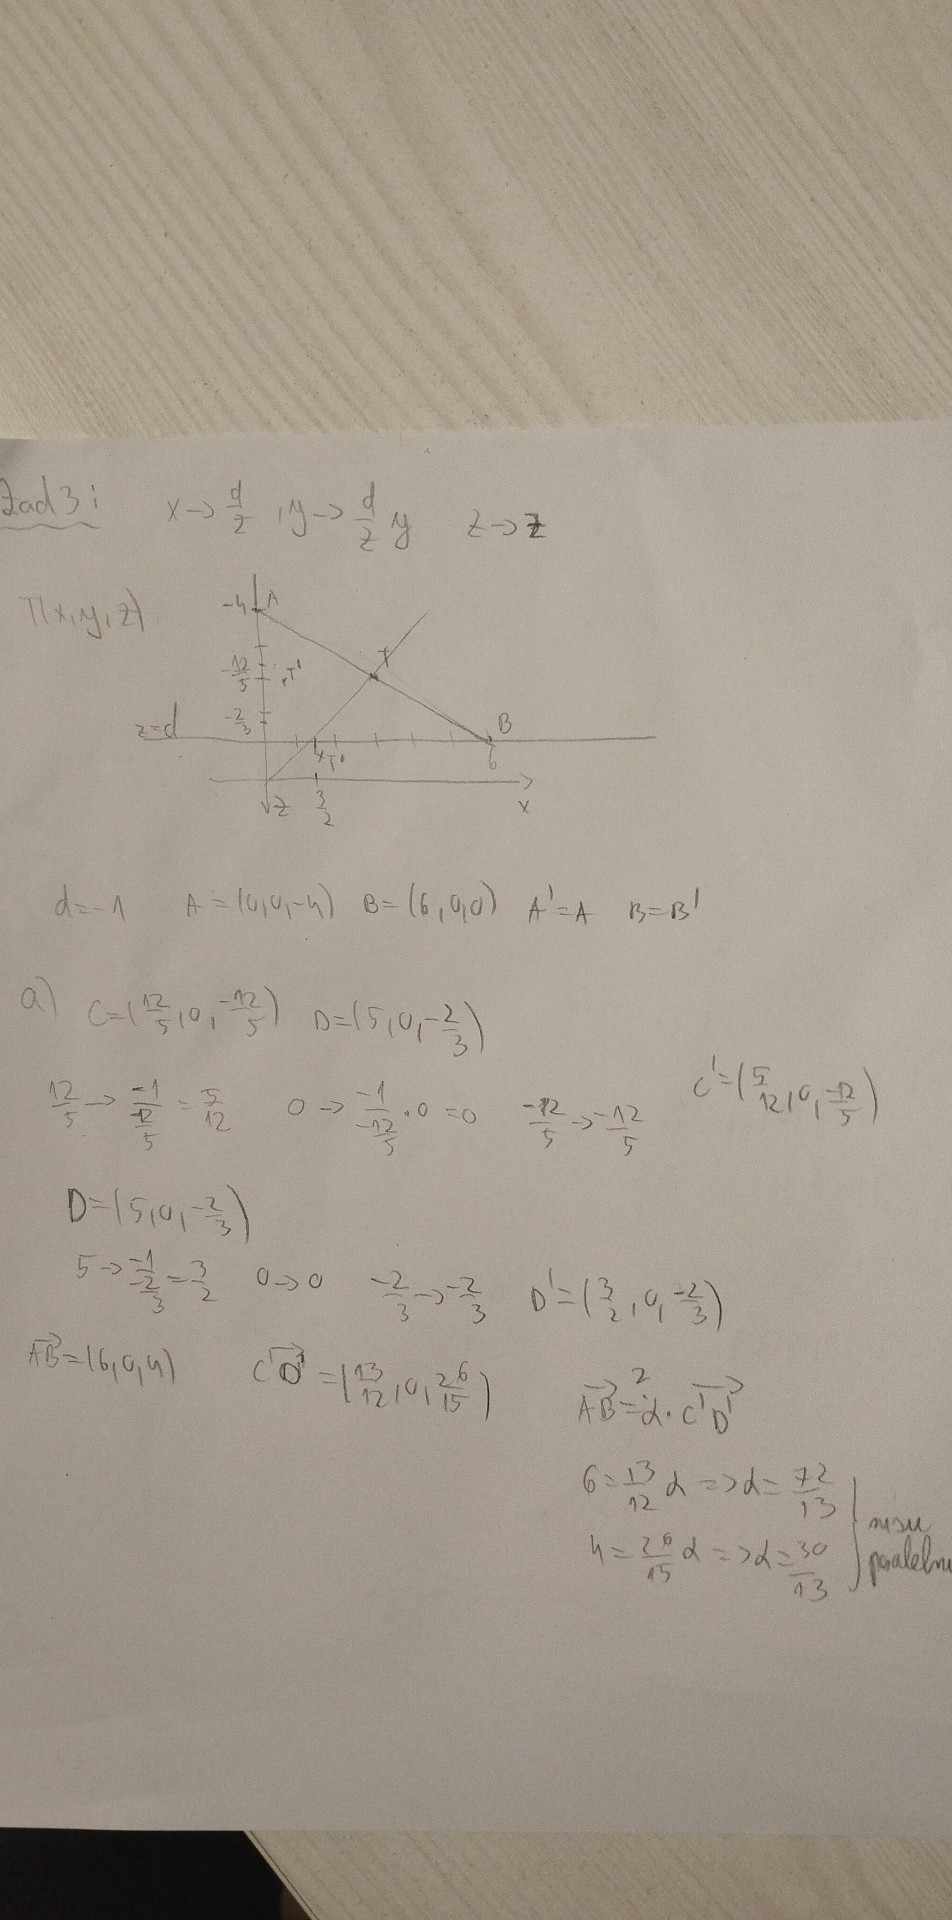 Zad 3:    x → d/z , y → d/z y    z → z
T(x,y,z)
-4 A
-12/5 T'
T
-2/3
z=d
B
T'
6
z
3/2
x
d=-1    A=(0,0,-4)    B=(6,0,0)    A'=A    B=B'
a)    C=(12/5,0,-12/5)    D=(5,0,-2/3)
12/5 → -1/(-12/5) = 5/12    0 → -1/(-12/5) · 0 = 0    -12/5 → -12/5    C'=(5/12,0,-12/5)
D=(5,0,-2/3)
5 → -1/(-2/3) = 3/2    0 → 0    -2/3 → -2/3    D'=(3/2,0,-2/3)
AB=(6,0,4)    C'D'=(13/12,0,26/15)    AB =? α · C'D'
6 = 13/12 α => α = 72/13
4 = 26/15 α => α = 30/13
nisu
paralelni